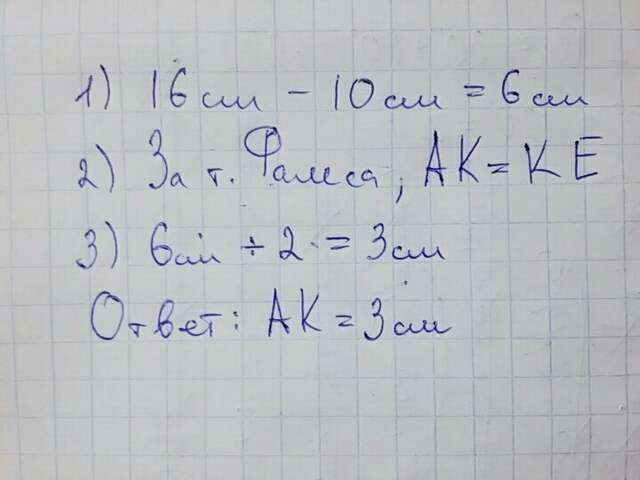 1) 16 см - 10 см = 6 см
2) За т. Фалеса, AK = KE
3) 6 см ÷ 2 = 3 см
Ответ: AK = 3 см